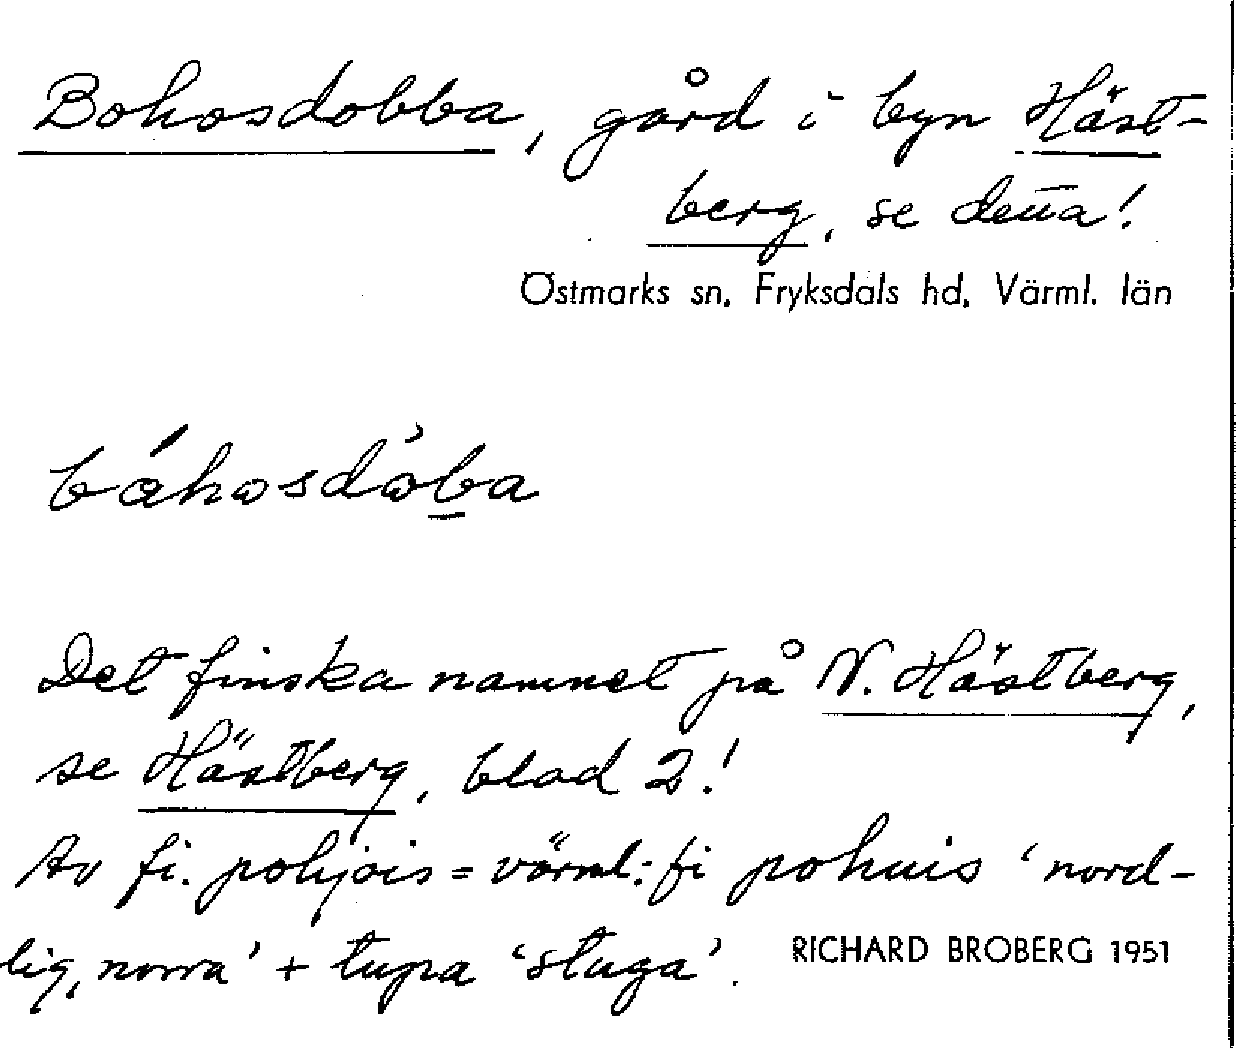 Bohosdobba, gård i byn Häst-
berg, se detta!
Östmarks sn, Fryksdals hd, Värml. län
båhosdòba
Det finska namnet på N. Hästberg,
se Hästberg, blad 2!
Av fi. pohjois = värml.-fi pohuis 'nord-
lig, norra' + tupa 'stuga'.
RICHARD BROBERG 1951